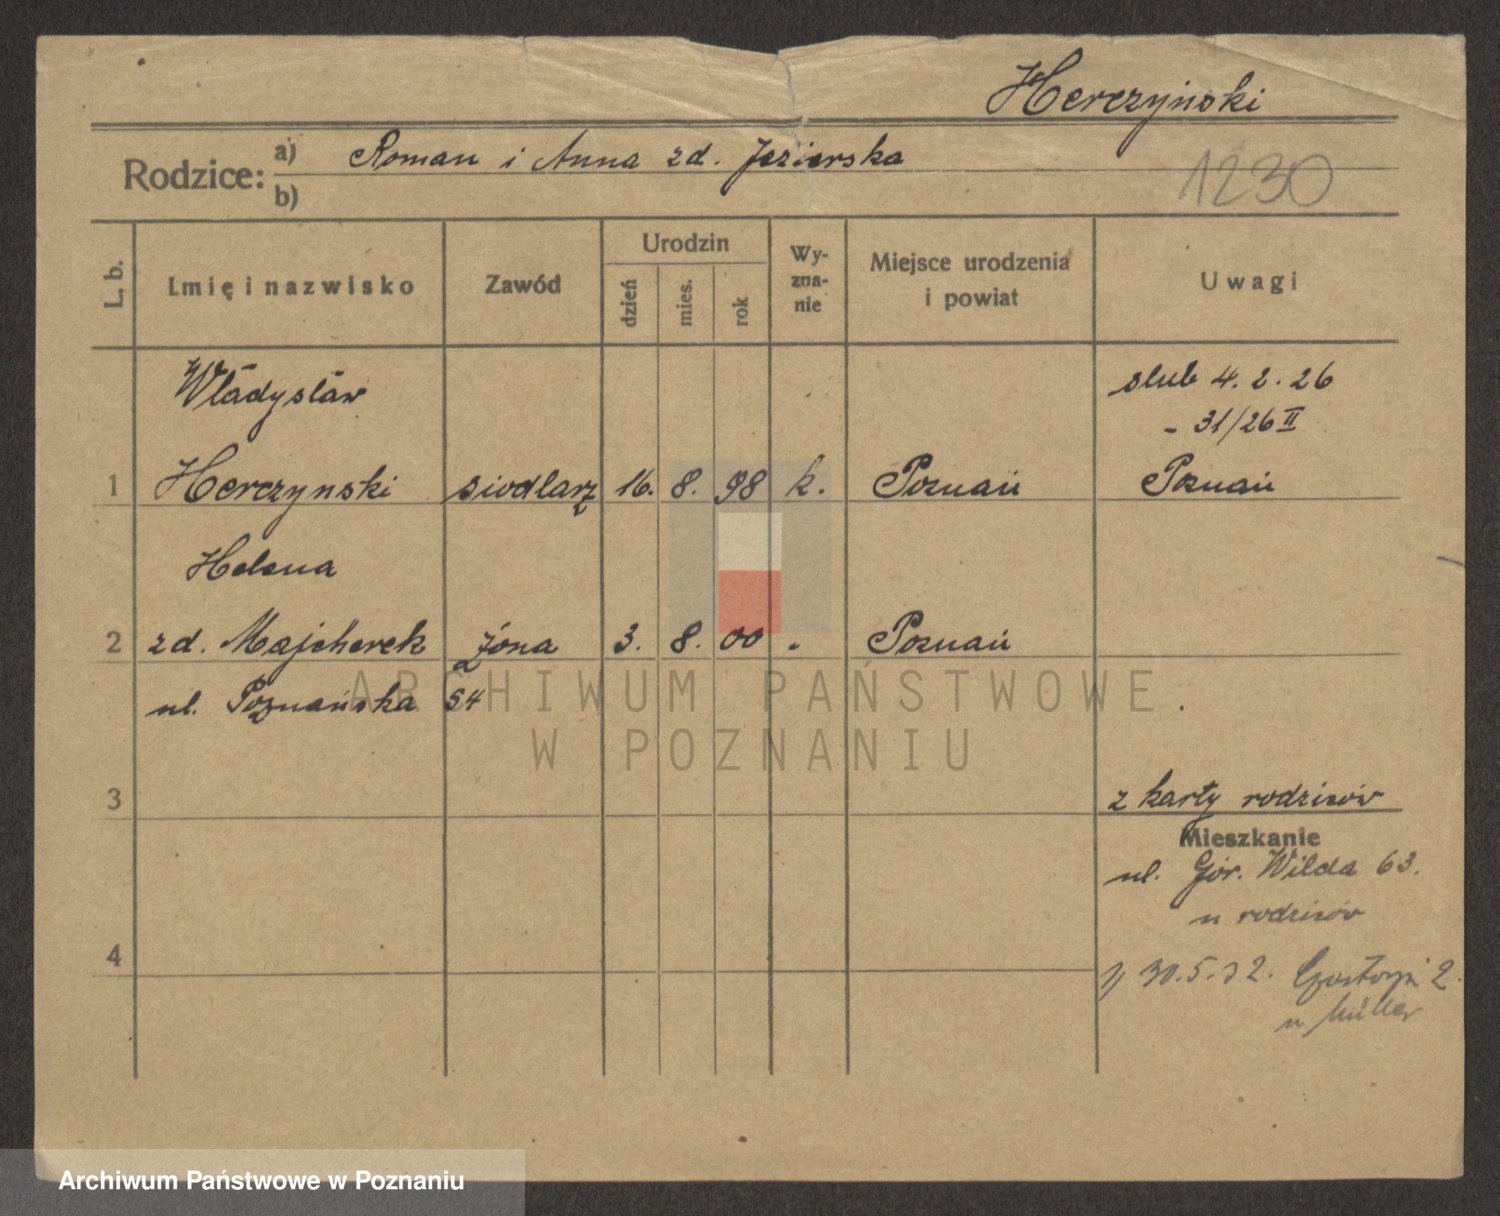 Herczyński
Rodzice: a) Roman i Anna zd. Jezierska
b)
1230
L. b. Imię i nazwisko Zawód Urodzin Wy-zna-nie Miejsce urodzenia i powiat Uwagi
dzień mies. rok
Władysław ślub 4. 2. 26
- 31/26 II
1 Herczynski siodlarz 16. 8. 98 k. Poznań Poznań
Helena
2 zd. Majcherek żona 3. 8. 00 " Poznań
ul. Poznańska 54
ARCHIWUM PAŃSTWOWE
W POZNANIU
3 z karty rodziców
Mieszkanie
ul. Gór. Wilda 63.
u rodziców
4
1) 30.5.32. 2.
u Müller
Archiwum Państwowe w Poznaniu